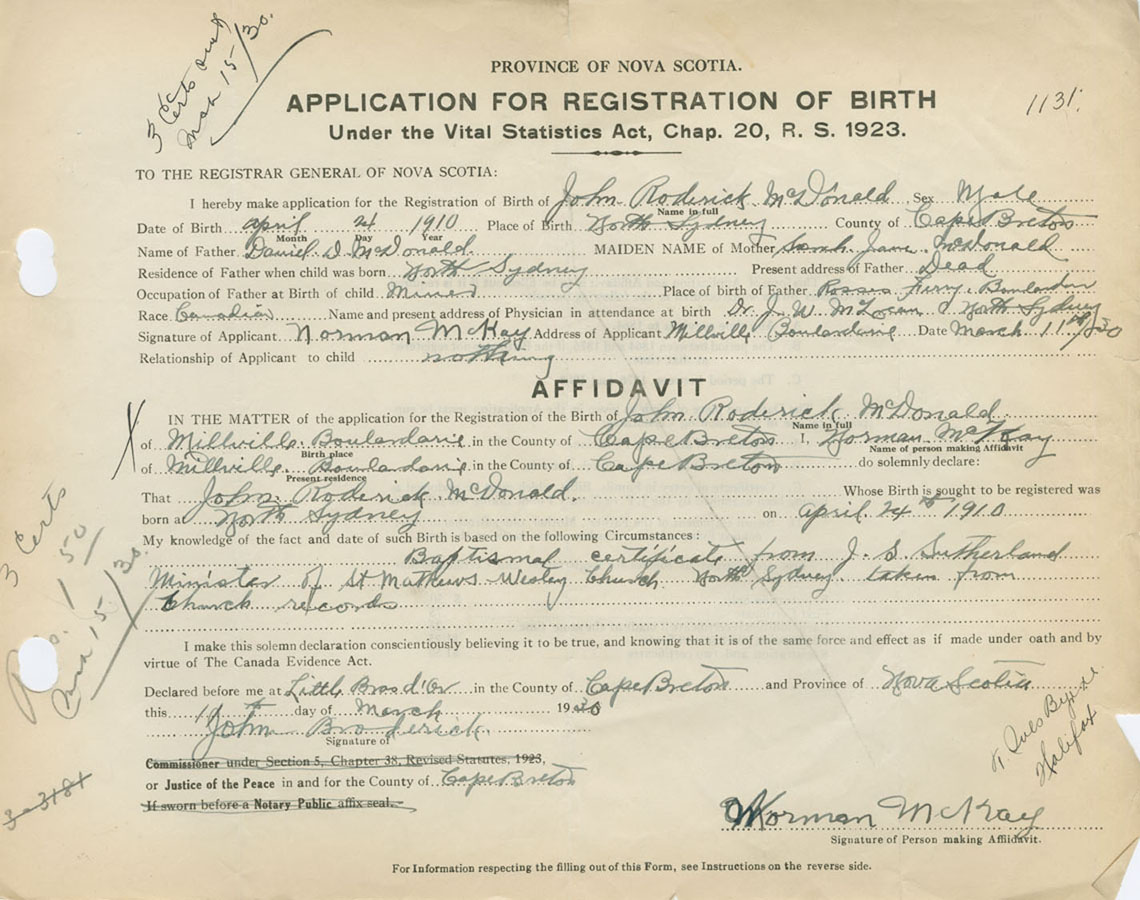 3 Certs out
Mar 15/30.
PROVINCE OF NOVA SCOTIA.
APPLICATION FOR REGISTRATION OF BIRTH
1131.
Under the Vital Statistics Act, Chap. 20, R. S. 1923.
TO THE REGISTRAR GENERAL OF NOVA SCOTIA:
I hereby make application for the Registration of Birth of John Roderick McDonald Sex Male
Name in full
Date of Birth April 24 1910 Place of Birth North Sydney County of Cape Breton
Month Day Year
Name of Father Daniel D McDonald MAIDEN NAME of Mother Sarah Jane McDonald
Residence of Father when child was born North Sydney Present address of Father Dead
Occupation of Father at Birth of child Miner Place of birth of Father Rosses Ferry Boularderie
Race Canadian Name and present address of Physician in attendance at birth Dr. J. W. McLean North Sydney
Signature of Applicant Norman McKay Address of Applicant Millville Boularderie Date March 11th/30
Relationship of Applicant to child nothing
AFFIDAVIT
X IN THE MATTER of the application for the Registration of the Birth of John Roderick McDonald
Name in full
of Millville Boulardarie in the County of Cape Breton I, Norman McKay
Birth place Name of person making Affidavit
of Millville Boulardarie in the County of Cape Breton do solemnly declare:
Present residence
That John Roderick McDonald. Whose Birth is sought to be registered was
born at North Sydney on April 24th 1910
My knowledge of the fact and date of such Birth is based on the following Circumstances:
Baptismal certificate from J. S. Sutherland
Minister of St Mathews Wesley Church North Sydney taken from
Church records
3 Certs
1 50
Mar 15/30.
I make this solemn declaration conscientiously believing it to be true, and knowing that it is of the same force and effect as if made under oath and by
virtue of The Canada Evidence Act.
Declared before me at Little Bras d'Or in the County of Cape Breton and Province of Nova Scotia
this 11th day of March 1930
John Broderick
Signature of
Commissioner under Section 5, Chapter 38, Revised Statutes, 1923,
or Justice of the Peace in and for the County of Cape Breton
If sworn before a Notary Public affix seal.
3-3181
Halifax
Norman McKay
Signature of Person making Affidavit.
For Information respecting the filling out of this Form, see Instructions on the reverse side.